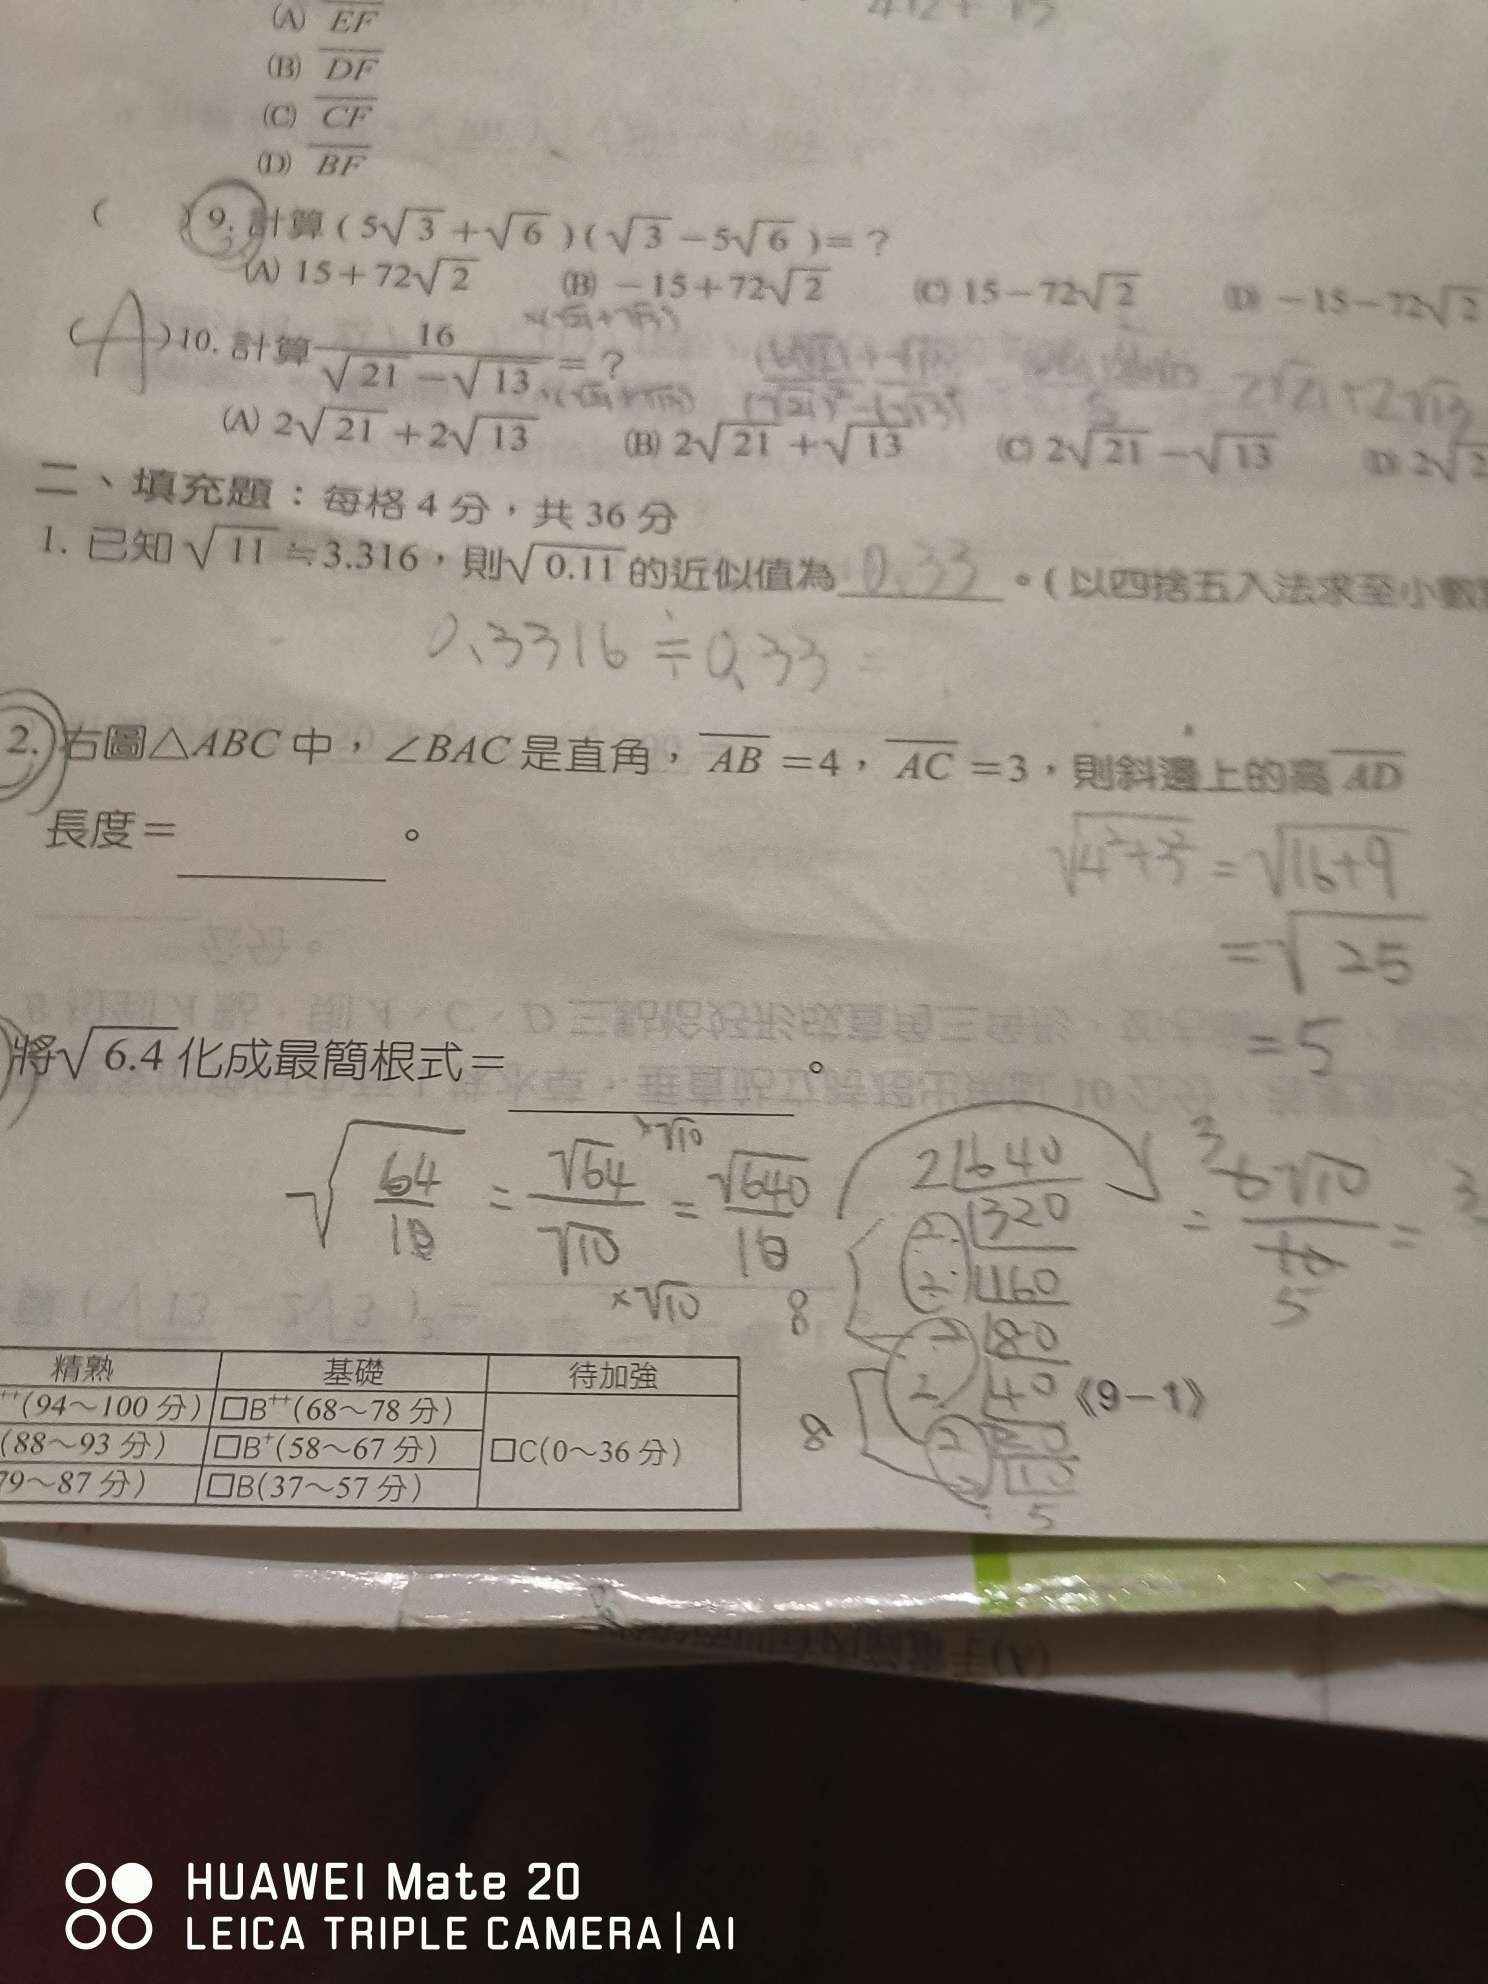 (A) EF
(B) DF
(C) CF
(D) BF
( ) 9. 計算(5√3+√6)(√3−5√6)=?
(A) 15+72√2 (B) −15+72√2 (C) 15−72√2 (D) −15−72√2
(A) 10. 計算 16/(√21−√13) =?
×(√21+√13)
2√21+2√13
(A) 2√21+2√13 (B) 2√21+√13 (C) 2√21−√13 (D) 2√2
二、填充題：每格4分，共36分
1. 已知√11≒3.316，則√0.11的近似值為 0.33 。(以四捨五入法求至小數
0.3316≒0.33
2. 右圖△ABC中，∠BAC是直角，AB=4，AC=3，則斜邊上的高AD
長度= 。
√4²+3² = √16+9
=√25
=5
將√6.4化成最簡根式= 。
√64/10 = √64/√10 = √640/10 = 6√10/10 =
×√10
×√10
2 640
2 320
2 160
2 80
2 40
2 20
2 10
5
8
8
3
5
精熟 基礎 待加強
++(94～100分) □B++(68～78分) □C(0～36分)
(88～93分) □B+(58～67分)
79～87分) □B(37～57分)
《9−1》
HUAWEI Mate 20
LEICA TRIPLE CAMERA | AI